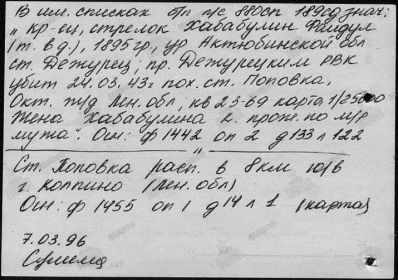 В им. списках б/п п/с 880сп 189сд знач:
"кр-ец, стрелок Хабабулин Фандул
(т. в д.), 1895гр, ур Актюбинской обл
ст. Дежурец, пр. Дежурецким РВК
убит 24.03.43г пох. ст. Поповка,
Окт. ж/д Лен. обл, кв 23-69 карта 1/25000
Жена Хабабулина к. прож. по м/р
мужа". Осн: ф 1442 оп 2 д 133 л 122
"
Ст. Поповка расп. в 8км ю/в
г. Колпино (Лен. обл)
Осн: ф 1455 оп 1 д 14 л 1 (карта)
7.03.96